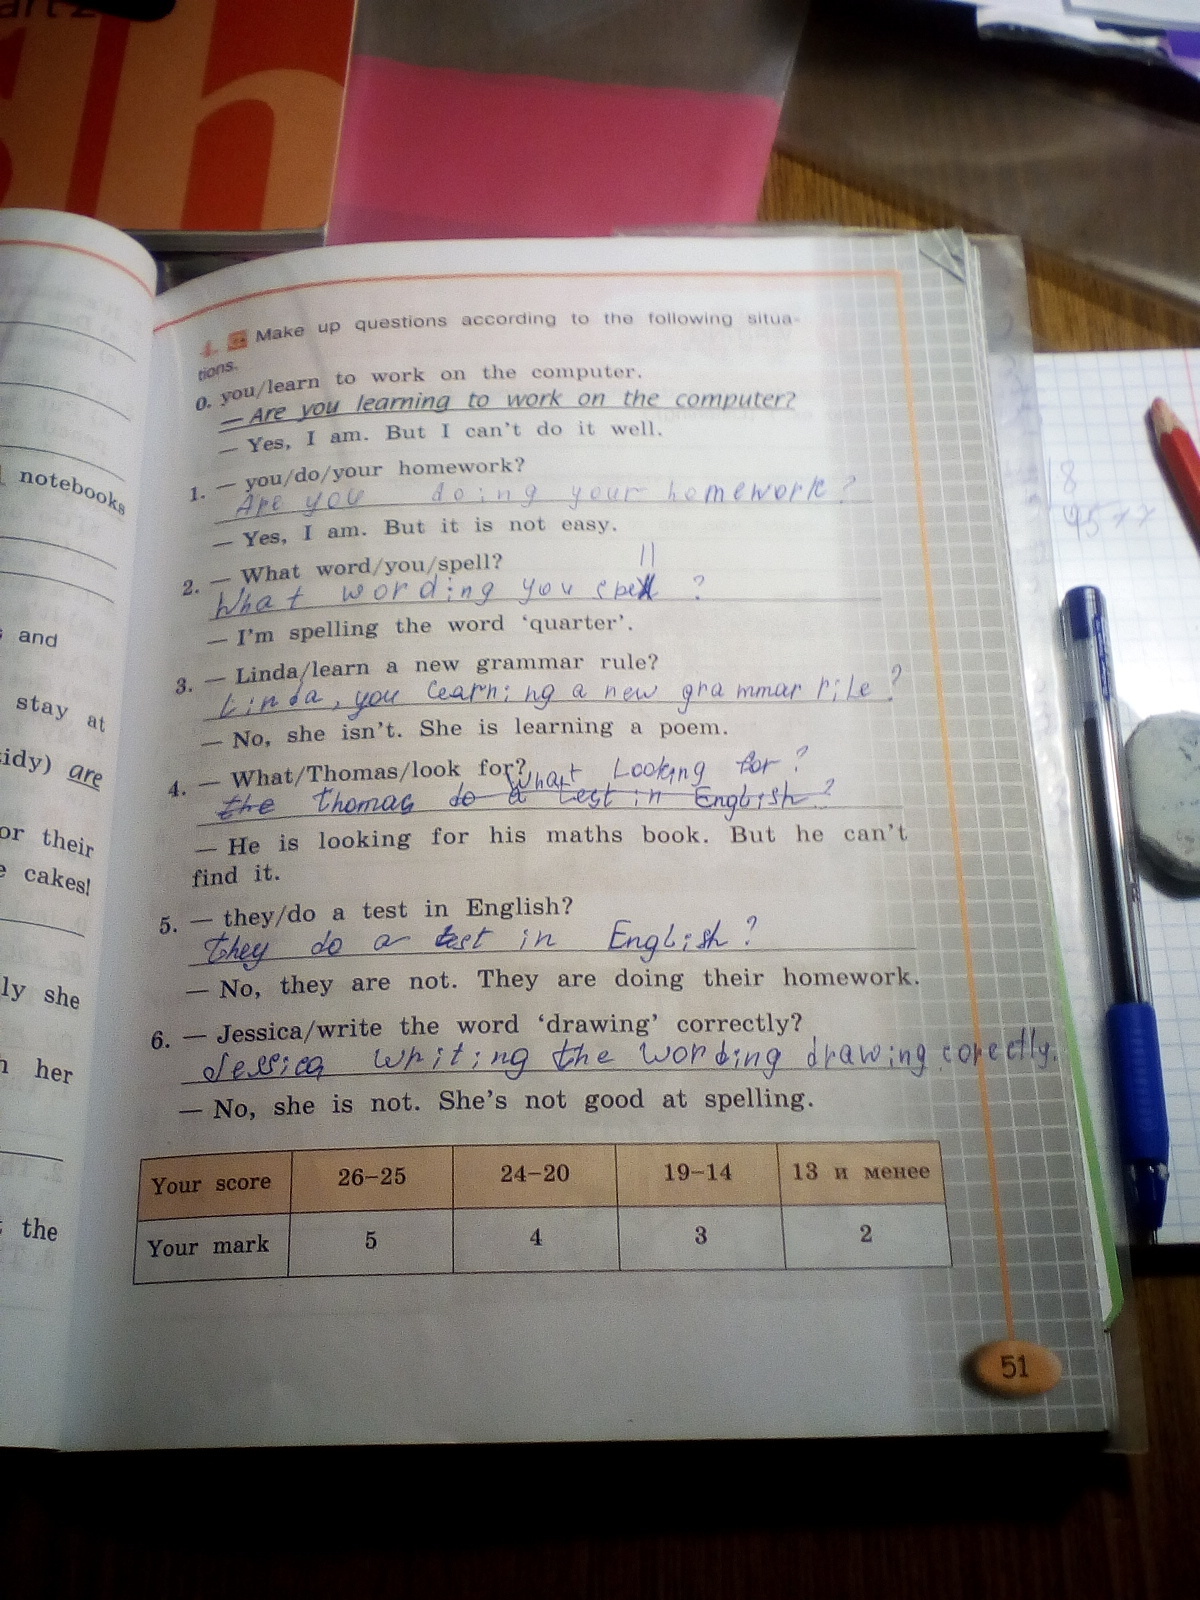 art 2
4. Make up questions according to the following situa-
tions.
0. you/learn to work on the computer.
— Are you learning to work on the computer?
— Yes, I am. But I can't do it well.
1. — you/do/your homework?
Are you doing your homework?
— Yes, I am. But it is not easy.
2. — What word/you/spell?
ll
What wording you spell ?
— I'm spelling the word 'quarter'.
3. — Linda/learn a new grammar rule?
Linda, you learning a new grammar rile ?
— No, she isn't. She is learning a poem.
4. — What/Thomas/look for?
What Looking for ?
the thomas do a test in English ?
— He is looking for his maths book. But he can't
find it.
5. — they/do a test in English?
they do a test in English ?
— No, they are not. They are doing their homework.
6. — Jessica/write the word 'drawing' correctly?
Jessica writing the wording drawing corectly.
— No, she is not. She's not good at spelling.
Your score 26–25 24–20 19–14 13 и менее
Your mark 5 4 3 2
51
notebooks
and
stay at
idy) are
or their
e cakes!
ly she
her
the
8